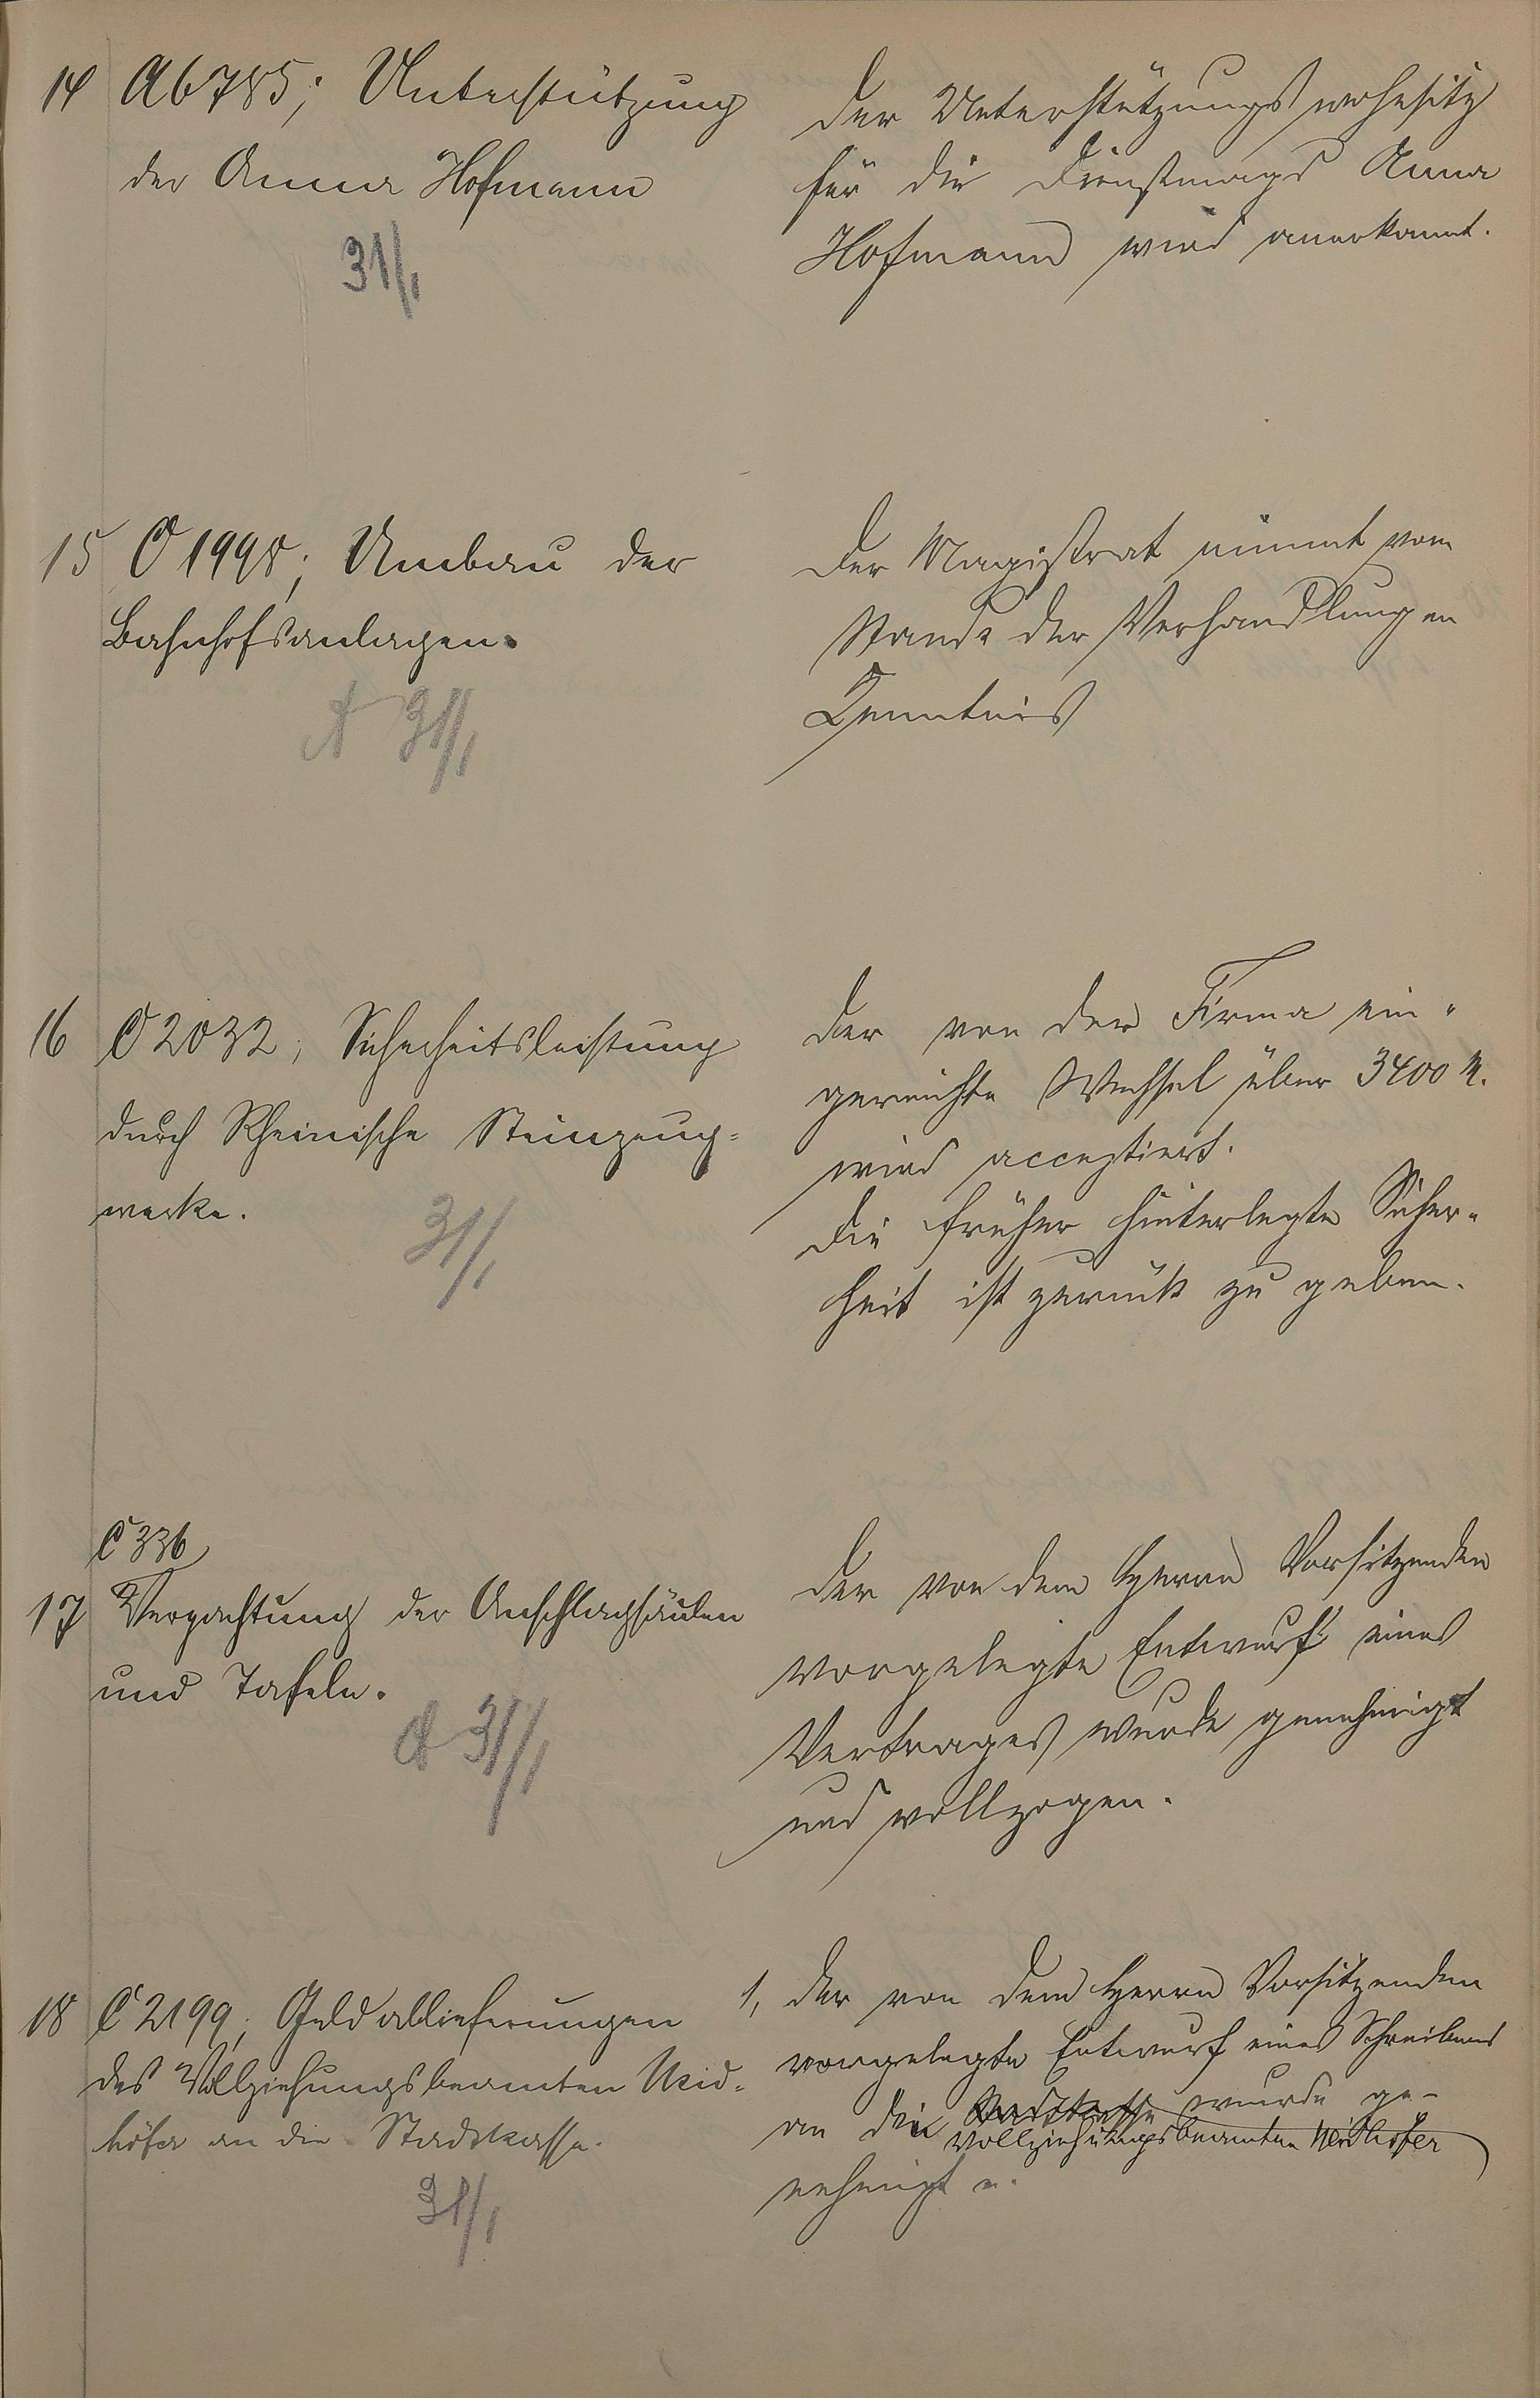 14 A 6785; Unterstützung
der Anna Hofmann
31/1
Der Unterstützungswohnsitz
für die Dienstmagd Anna
Hofmann wird anerkannt.
15 C 1998; Umbau der
Bahnhofsanlagen.
A 31/1
Der Magistrat nimmt vom
Stande der Verhandlungen
Kenntnis
16 C 2032; Sicherheitsleistung
durch Rheinische Steinzeug-
werke.
31/1
Der von der Firma ein-
gereichte Wechsel über 3400 M.
wird acceptiert.
Die früher hinterlegte Sicher-
heit ist zurück zu geben.
C 336
17 Verpachtung der Anschlagsäulen
und Tafeln.
A 31/1
Der von dem Herrn Vorsitzenden
vorgelegte Entwurf eines
Vertrages wurde genehmigt
und vollzogen.
18 C 2199; Geldablieferungen
des Vollziehungsbeamten Neid-
höfer an die Stadtkasse.
31/1
1, Der von dem Herrn Vorsitzenden
vorgelegte Entwurf eines Schreibens
an den Stadtkasse wurde ge-
Vollziehungsbeamten Neidhöfer
nehmigt u.